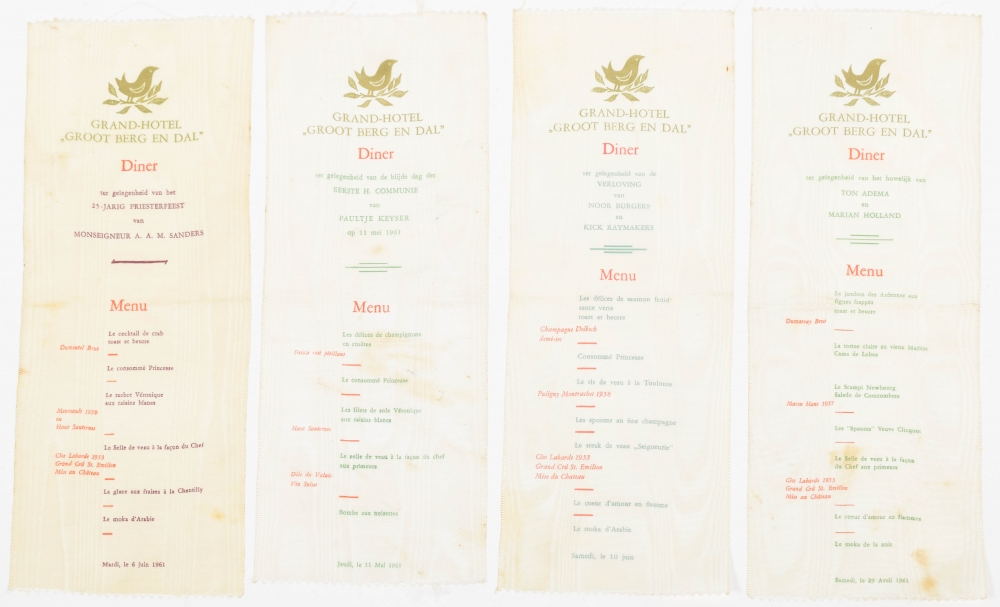 GRAND-HOTEL
„GROOT BERG EN DAL”
Diner
ter gelegenheid van het
25-JARIG PRIESTERFEEST
van
MONSEIGNEUR A. A. M. SANDERS
Menu
Le cocktail de crab
toast et beurre
Dumenteil Brut
Le consommé Princesse
Le turbot Véronique
aux raisins blancs
Meursault 1959
ou
Haut Sauternes
La Selle de veau à la façon du Chef
Clos Labarde 1953
Grand Crû St. Emilion
Mise au Château
La glace aux fraises à la Chantilly
Le moka d'Arabie
Mardi, le 6 juin 1961
GRAND-HOTEL
„GROOT BERG EN DAL”
Diner
ter gelegenheid van de blijde dag der
EERSTE H. COMMUNIE
van
PAULTJE KEYSER
op 11 mei 1961
Menu
Les délices de champignons
en croûtes
pétillant
Le consommé Princesse
Les filets de sole Véronique
aux raisins blancs
Haut Sauternes
La selle de veau à la façon du chef
aux primeurs
Dôle de Valais
Bombe aux noisettes
Jeudi, le 11 Mai 1961
GRAND-HOTEL
„GROOT BERG EN DAL”
Diner
ter gelegenheid van de
VERLOVING
van
NOOR BURGERS
en
KICK RAYMAKERS
Menu
Les délices de saumon fraud
sauce verte
toast et beurre
Champagne Delbeck
demi-sec
Consommé Princesse
Le ris de veau à la Toulouse
Puligny Montrachet 1959
Les spooms au fine champagne
Le steak de veau „Seigneurie”
Clos Labarde 1953
Grand Crû St. Emilion
Mise du Château
Le coeur d'amour en flamme
Le moka d'Arabie
Samedi, le 10 juin
GRAND-HOTEL
„GROOT BERG EN DAL”
Diner
ter gelegenheid van het huwelijk van
TON ADEMA
en
MARIAN HOLLAND
Menu
Le jambon des Ardennes aux
figues frappés
toast et beurre
Brut
La tortue claire au vieux Martin
Le Scampi Newbourg
Salade de Concombres
Macon blanc 1957
Les "Spooms" Veuve Clicquot
La Selle de veau à la façon
du Chef aux primeurs
Clos Labarde 1953
Grand Crû St. Emilion
Mise au Château
Le coeur d'amour en flammes
Le moka de la
Samedi, le 29 Avril 1961